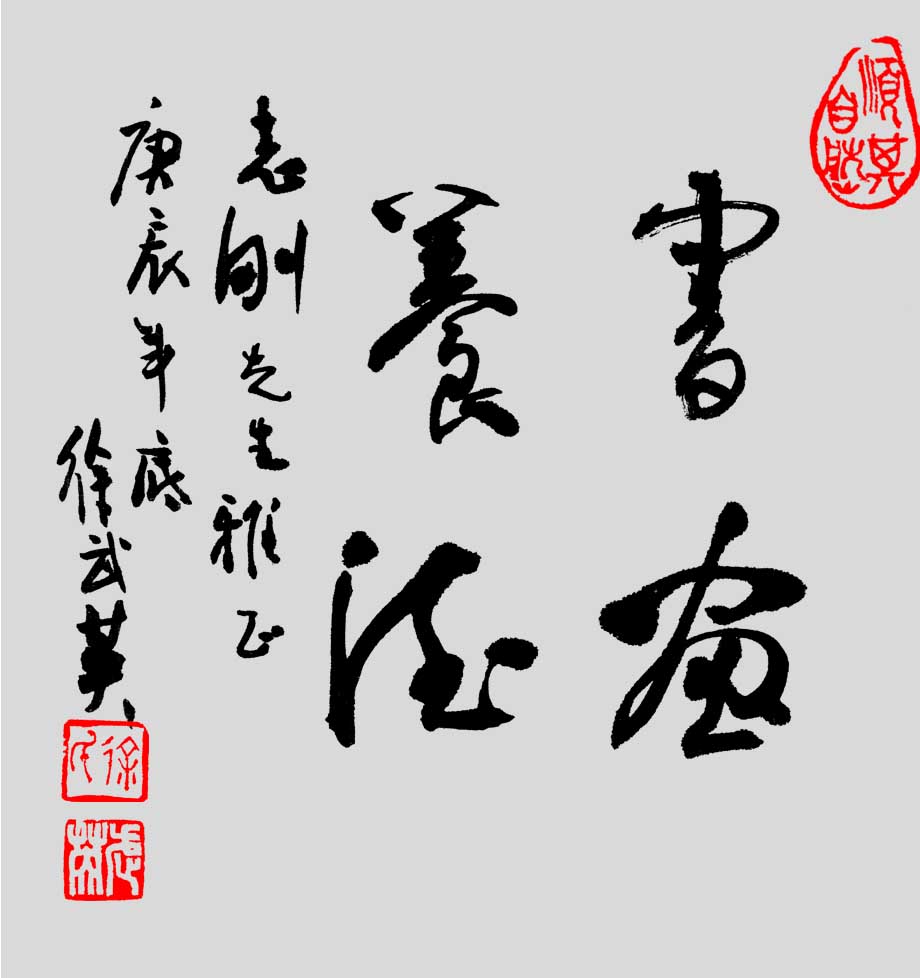 順其
自然
書畫
養德
志刚先生雅正
庚辰年底
徐武英
徐氏
武英